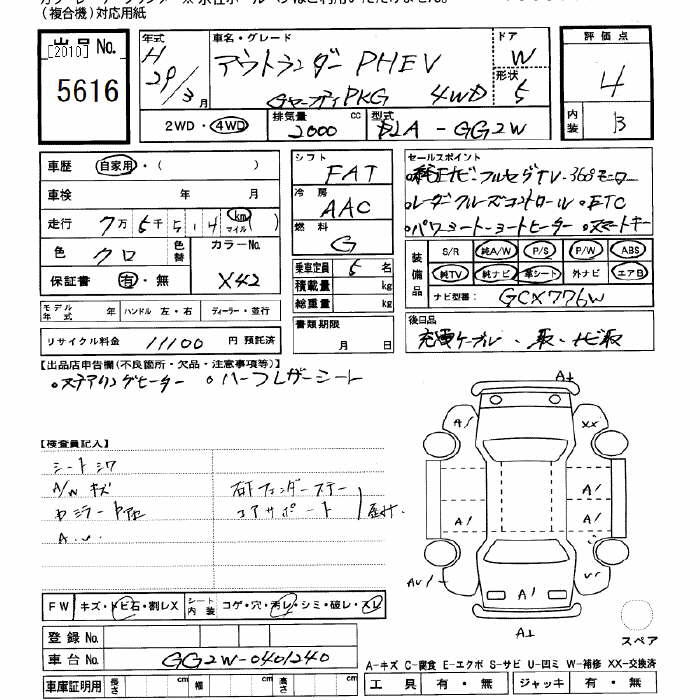 (複合機)対応用紙
出品 No.
[2010]
5616
年式 H 29/3月
車名・グレード アウトランダー PHEV
Gセーフティ PKG 4WD
ドア W
形状 5
2WD・4WD
排気量 2000 cc
型式 DLA-GG2W
評価点 4
内装 B
車歴 自家用・( )
車検 年 月
走行 7万5千514 km マイル( )
色 クロ 色替 カラーNo.
保証書 有・無 X42
シフト FAT
冷房 AAC
燃料 G
乗車定員 5 名
積載量 kg
総重量 kg
書類期限
月 日
セールスポイント
・純正ナビ・フルセグTV・360°モニター
・レーダークルーズコントロール・ETC
・パワーシート・シートヒーター・スマートキー
装備品
S/R 純A/W P/S P/W ABS
純TV 純ナビ 革シート 外ナビ エアB
ナビ型番: GCX776W
後日品
充電ケーブル・取・ナビ取
モデル年式 年 ハンドル 左・右 ディーラー・並行
リサイクル料金 11100 円 預託済
【出品店申告欄(不良箇所・欠品・注意事項等)】
・ステアリングヒーター ・ハーフレザーシート
【検査員記入】
シートシワ
A/W キズ
右Fフェンダーステー
コアサポート
A.U.
FW キズ・トビ石・割レX シート内装 コゲ・穴・汚レ・シミ・破レ・スレ
登録 No.
車台 No. GG2W-0401240
車庫証明用 長さ cm 幅 cm 高さ cm
A↓
A/
XX
A/
A/
A/
A/
AU
A/
A↓
スペア
A-キズ C-腐食 E-エクボ S-サビ U-凹ミ W-補修 XX-交換済
工具 有・無 ジャッキ 有・無